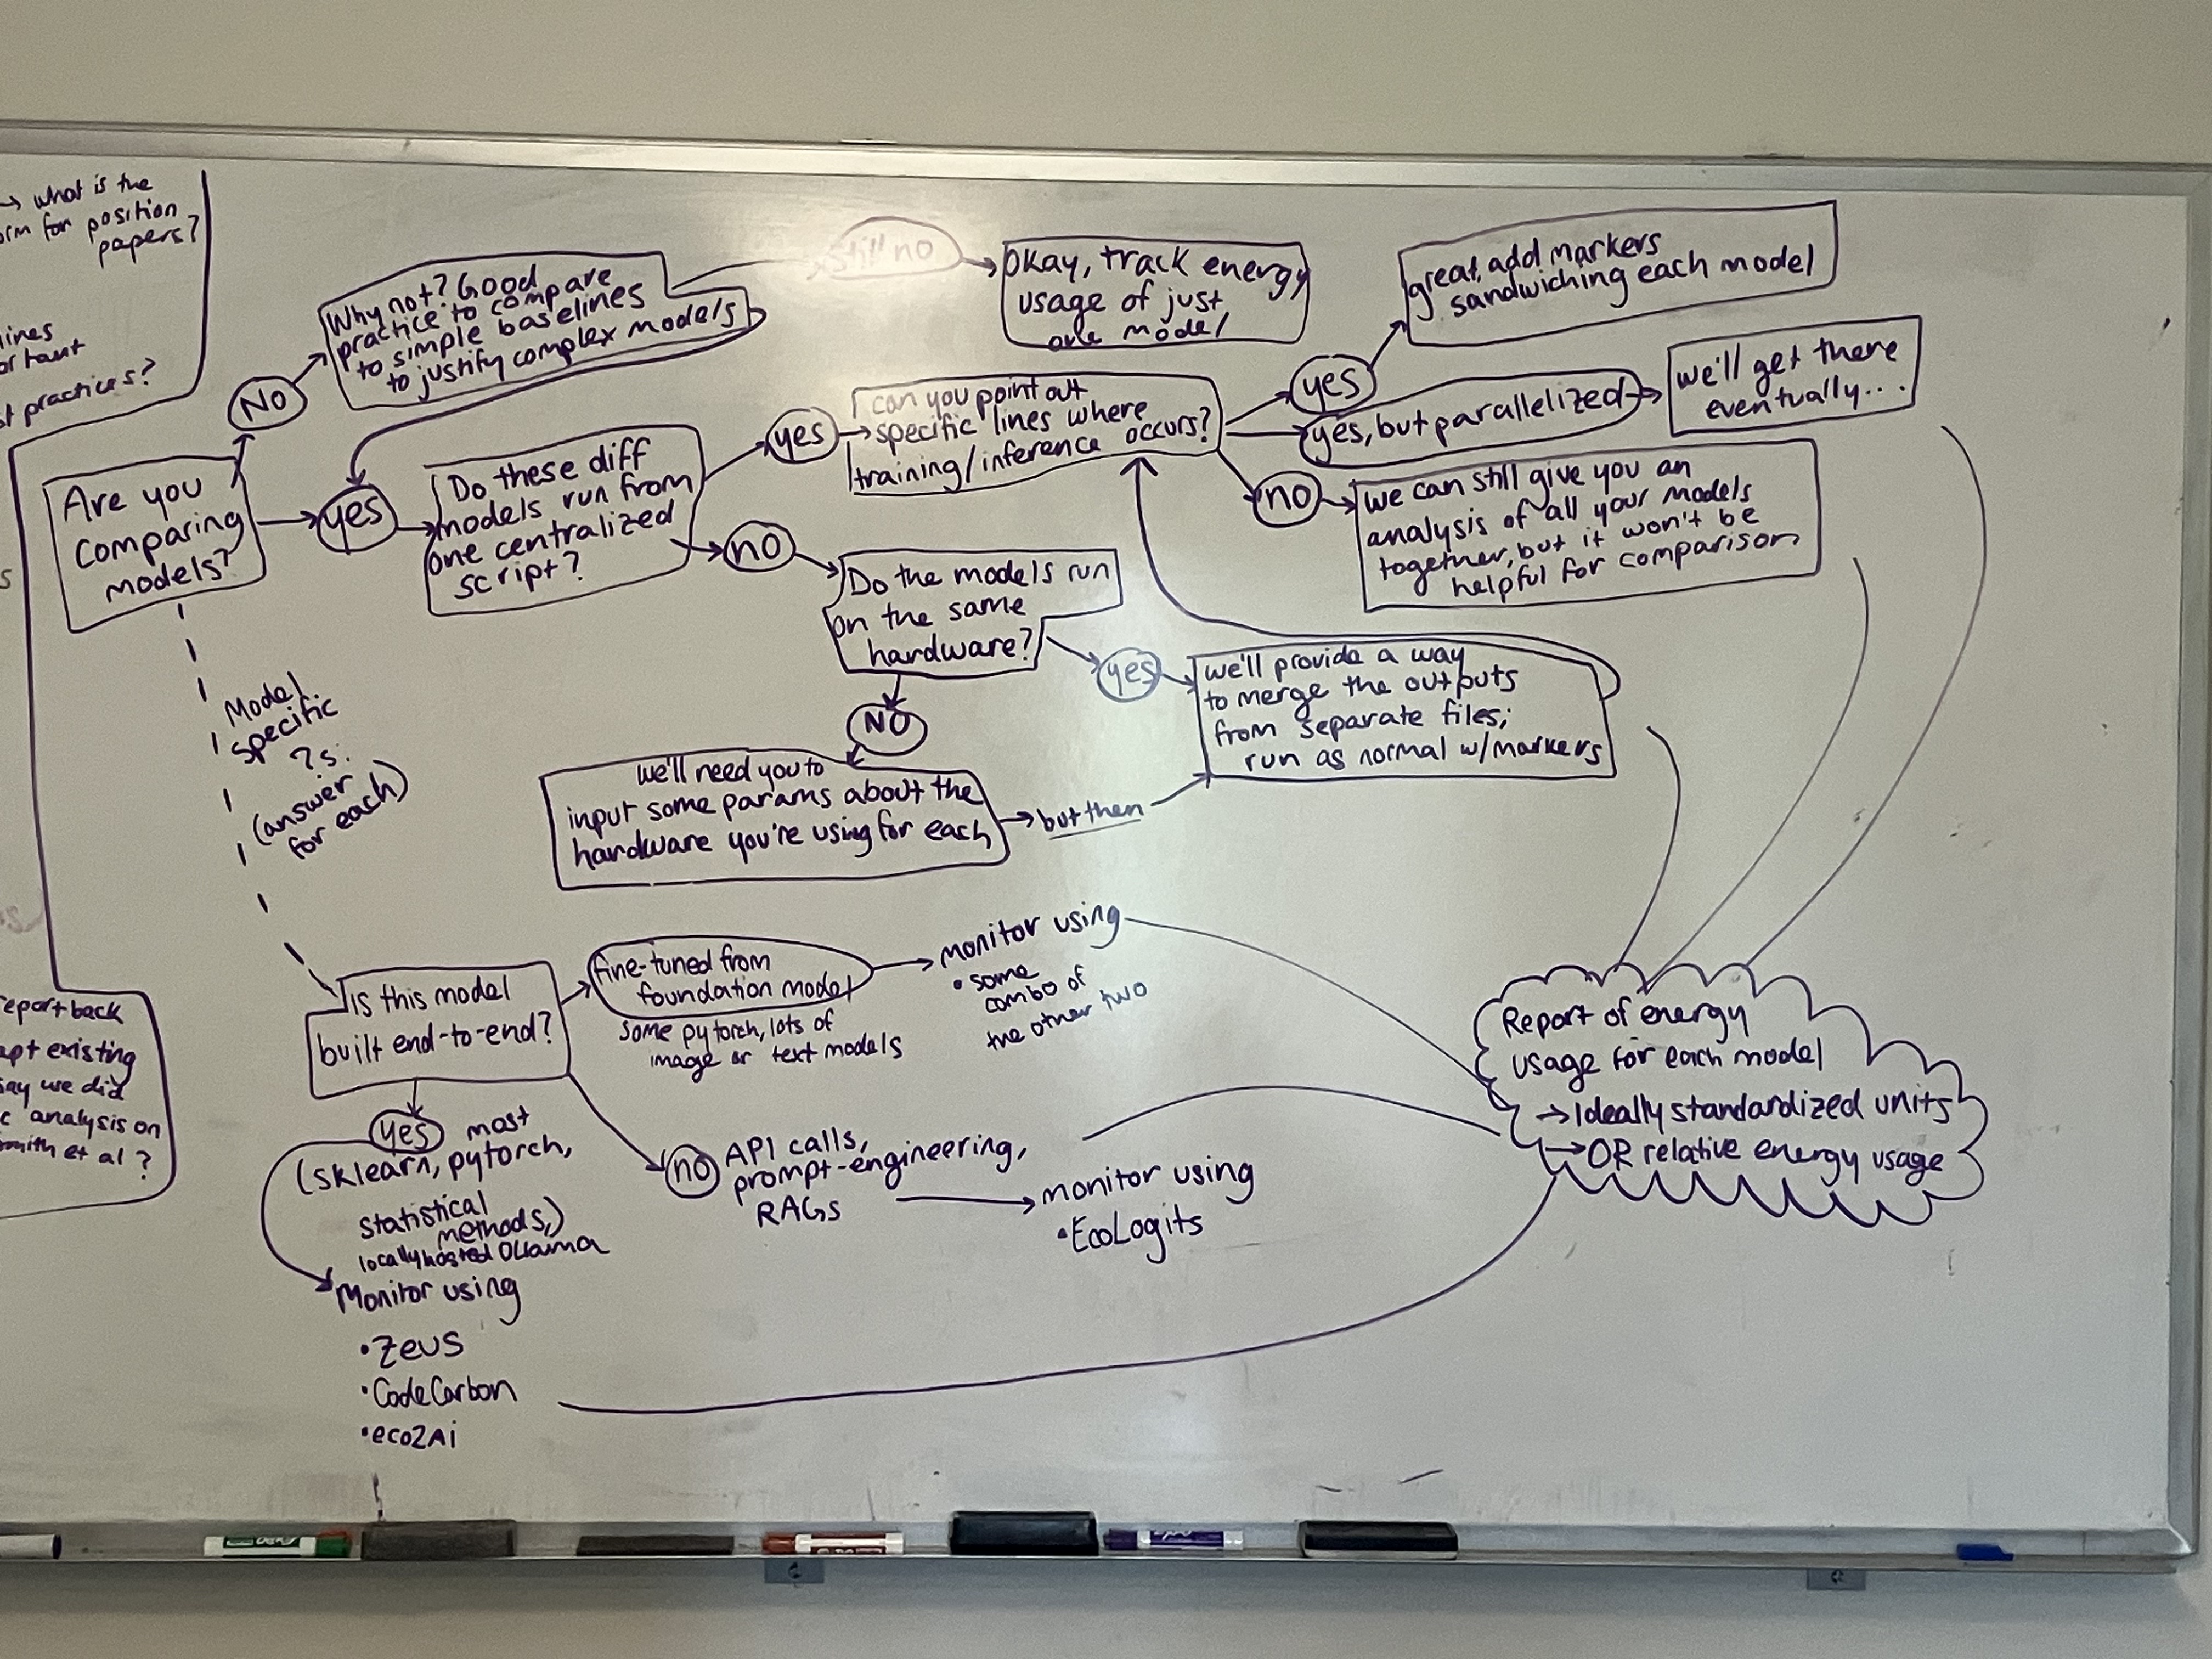 → what is the
for position
papers?
practices?
No
Why not? Good
practice to compare
to simple baselines
to justify complex models
still no
Okay, track energy
usage of just
one model
great, add markers
sandwiching each model
Are you
comparing
models?
yes
Do these diff
models run from
one centralized
script?
yes
can you point out
specific lines where
training/inference occurs?
yes
yes, but parallelized
we'll get there
eventually...
no
we can still give you an
analysis of all your models
together, but it won't be
helpful for comparison
no
Do the models run
on the same
hardware?
yes
we'll provide a way
to merge the outputs
from separate files;
run as normal w/markers
NO
we'll need you to
input some params about the
hardware you're using for each
but then
Model
specific
?s:
(answer
for each)
Is this model
built end-to-end?
fine-tuned from
foundation model
some pytorch, lots of
image or text models
monitor using
• some
combo of
the other two
yes
most
(sklearn, pytorch,
statistical
methods,)
locally hosted Ollama
Monitor using
• Zeus
• CodeCarbon
• eco2Ai
no
API calls,
prompt-engineering,
RAGs
monitor using
• EcoLogits
Report of energy
usage for each model
→ Ideally standardized units
→ OR relative energy usage
report back
existing
say we did
analysis on
et al?